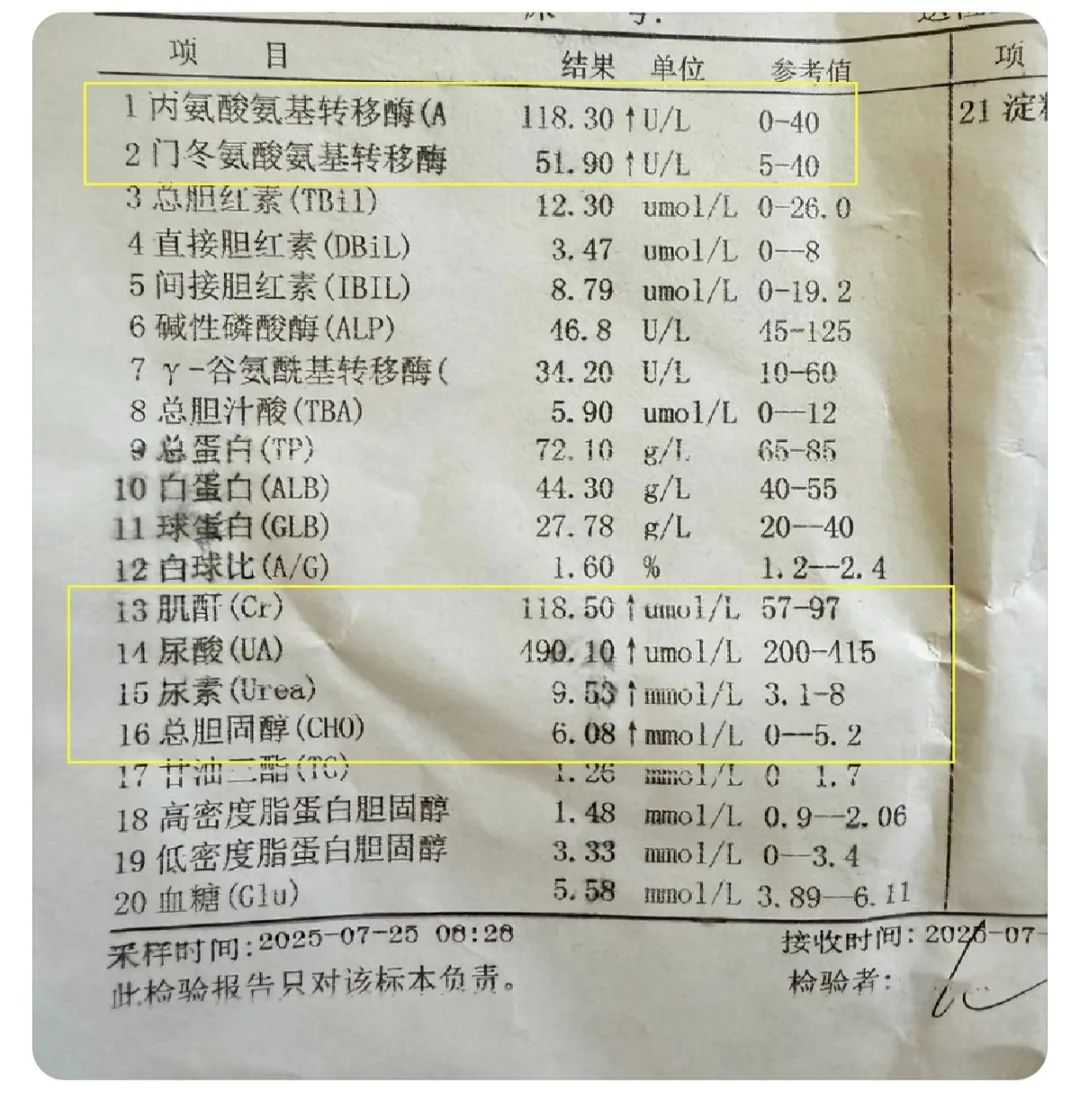 项 目 结果 单位 参考值 项
1 丙氨酸氨基转移酶(A 118.30 ↑ U/L 0-40 21 淀
2 门冬氨酸氨基转移酶 51.90 ↑ U/L 5-40
3 总胆红素(TBil) 12.30 umol/L 0-26.0
4 直接胆红素(DBiL) 3.47 umol/L 0--8
5 间接胆红素(IBIL) 8.79 umol/L 0-19.2
6 碱性磷酸酶(ALP) 46.8 U/L 45-125
7 γ-谷氨酰基转移酶( 34.20 U/L 10-60
8 总胆汁酸(TBA) 5.90 umol/L 0--12
9 总蛋白(TP) 72.10 g/L 65-85
10 白蛋白(ALB) 44.30 g/L 40-55
11 球蛋白(GLB) 27.78 g/L 20--40
12 白球比(A/G) 1.60 % 1.2--2.4
13 肌酐(Cr) 118.50 ↑ umol/L 57-97
14 尿酸(UA) 490.10 ↑ umol/L 200-415
15 尿素(Urea) 9.53 ↑ mmol/L 3.1-8
16 总胆固醇(CHO) 6.08 ↑ mmol/L 0--5.2
17 甘油三酯(TG) 1.26 mmol/L 0 1.7
18 高密度脂蛋白胆固醇 1.48 mmol/L 0.9--2.06
19 低密度脂蛋白胆固醇 3.33 mmol/L 0--3.4
20 血糖(Glu) 5.58 mmol/L 3.89--6.11
采样时间:2025-07-25 08:28 接收时间:2025-07-
此检验报告只对该标本负责。 检验者: